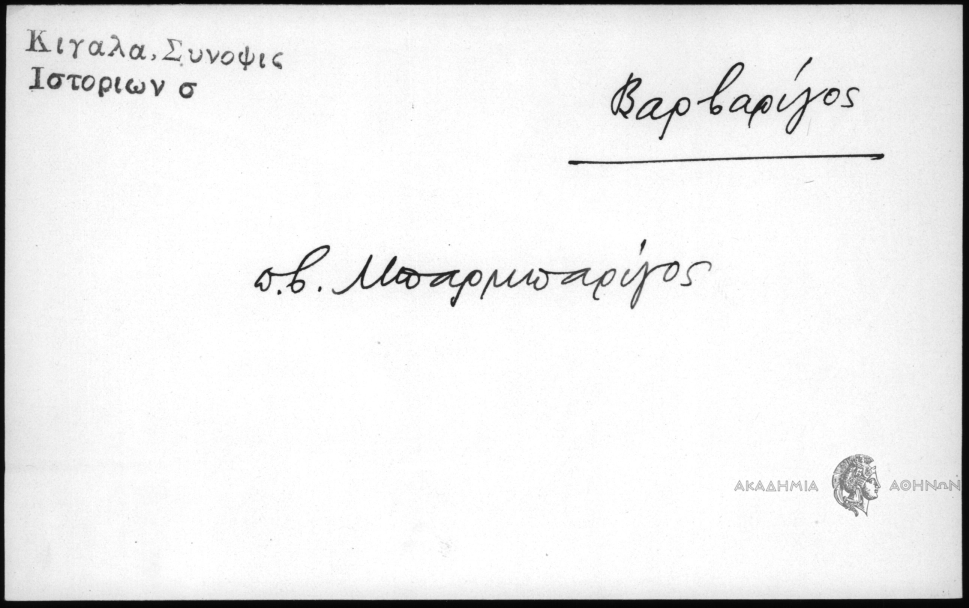 Κιγαλα, Συνοψις
Ιστοριων σ
Βαρβαρίγος
π.β. Μπαρμπαρίγος
ΑΚΑΔΗΜΙΑ ΑΘΗΝΩΝ